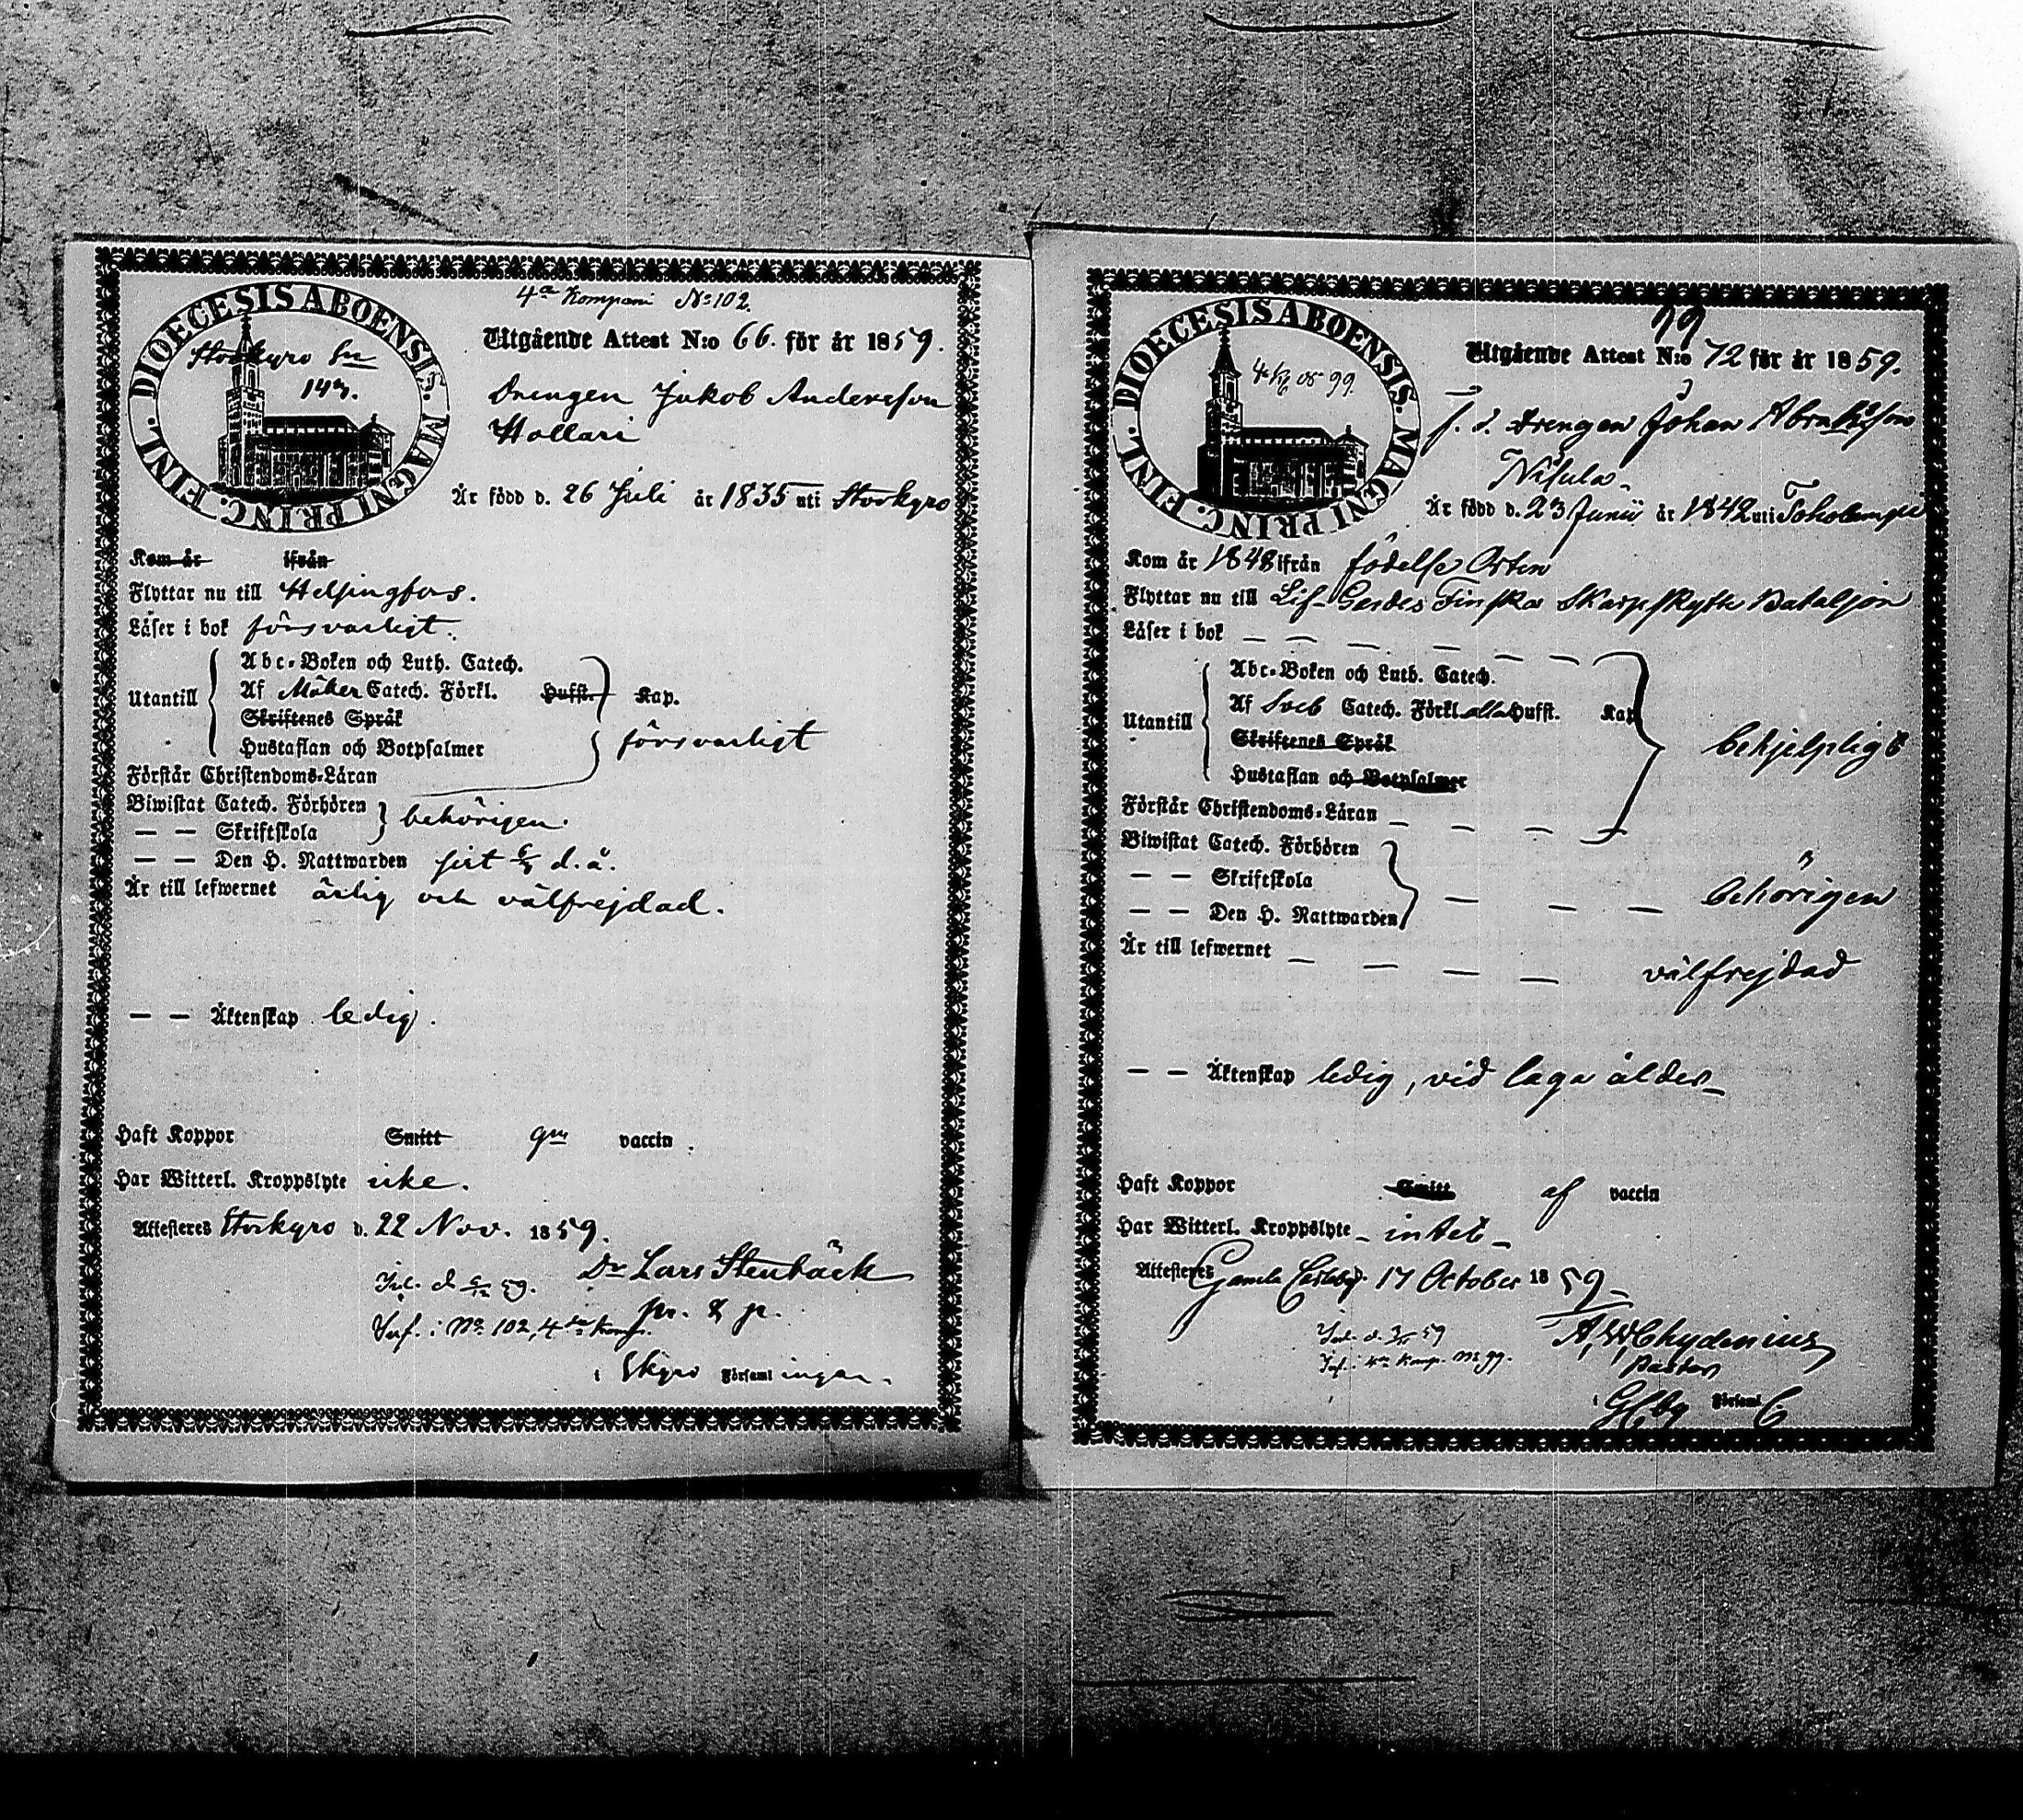 4de Kompani No 102.
DIOECESIS ABOENSIS. MAGNI PRINC. FINL.
Storkyro
Utgående Attest N:o 66. för år 1859.
Drengen Jakob Andersson
Hollari
Är född d. 26 Juli år 1835 uti Storkyro
Kom år ifrån
Flyttar nu till Helsingfors.
Läser i bok försvarligt.
Utantill
Abc-Boken och Luth. Catech.
Af Möller Catech. Förkl. Hufst. Kap.
Skriftenes Språk
Hustaflan och Botpsalmer
försvarligt
Förstår Christendoms-Läran
Biwistat Catech. Förhören
— — Skriftskola
behörigen.
— — Den H. Nattwarden sist d. å.
Är till lefwernet ärlig och välfrejdad.
— — Äktenskap ledig.
Haft Koppor Smitt gm vaccin.
Har Witterl. Kroppslyte icke.
Attesteras Storkyro d. 22 Nov. 1859.
Dr Lars Stenbäck
Inf. i No 102, 4de Komp.
i Skyro Församlingar.
59
DIOECESIS ABOENSIS. MAGNI PRINC. FINL.
99.
Utgående Attest N:o 72 för år 1859.
f. d. Drengen Johan Abrahsson
Nisula
Är född d. 23 Junii år 1842 uti Toholampi
Kom år 1848 ifrån födelse Orten
Flyttar nu till Lif-Gardes Finska Skarpskytte Bataljon
Läser i bok — — — — — — —
Utantill
Abc-Boken och Luth. Catech.
Af Sveb Catech. Förkl alla Hufst. Kap
Skriftenes Språk
Hustaflan och Botpsalmer
behjelpligt
Förstår Christendoms-Läran — — — —
Biwistat Catech. Förhören
— — Skriftskola
— — — behörigen
— — Den H. Nattwarden
Är till lefwernet — — — — välfrejdad
— — Äktenskap ledig, vid laga ålder —
Haft Koppor Smitt af vaccin
Har Witterl. Kroppslyte — intet —
Attesteras Gamla Carleby d. 17 October 1859 —
Inf. i 4de Komp. No 99.
A, W, Chydenius
Pastor
i GCby Församl